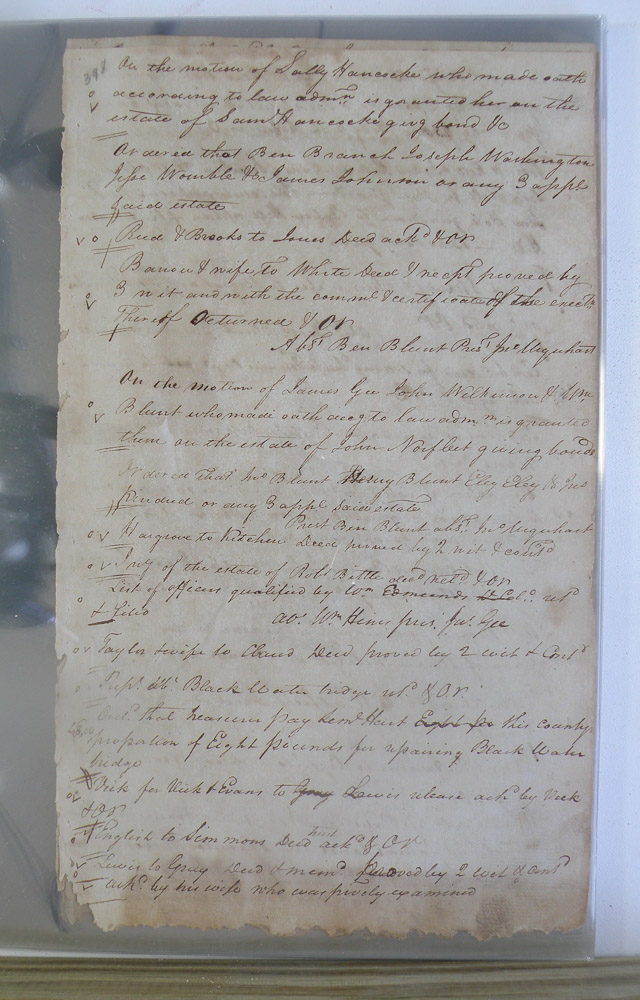 On the motion of Sally Hancocke who made oath
according to law admn. is granted her on the
estate of Saml Hancocke givg bond &c
Ordered that Ben Branch Joseph Washington
Jesse Womble & James Johnson or any 3 appr
said estate
Reed & Brooks to Jones Deed ackd & OR
Barrow & wife to White Deed & recpt proved by
3 wit and with the commn & certificate of the exectn
thereof Returned & OR
Abst Ben Blunt Prest Jno Urquhart
On the motion of James Gee John Wilkinson & Wm
Blunt who made oath accg to law admn is granted
them on the estate of John Norfleet giving bond
Ordered that Blunt Henry Blunt Eley Eley & Jas
or any 3 appr said estate
Prest Ben Blunt abst Jno Urquhart
Hargrove to Kitchen Deed proved by 2 wit & contd
Invy of the estate of Robt Bittle decd retd & OR
List of officers qualified by Wm Edmunds Lt Col. retd
abs. Wm Hines pres. Js. Gee
Taylor & wife to Claud Deed proved by 2 wit & Contd
abt Black Water bridge retd & OR.
Ord. that treasurer pay Lemn Hart Eight this countys
proportion of Eight Pounds for repairing Black Water
bridge
Vick for Vick & Evans to Gray Lewis release ackd by Vick
& OR
English to Simmons Deed ackd & OR
Lewis to Gray Deed & memd Proved by 2 wit & contd
ackd by his wife who was privily examined